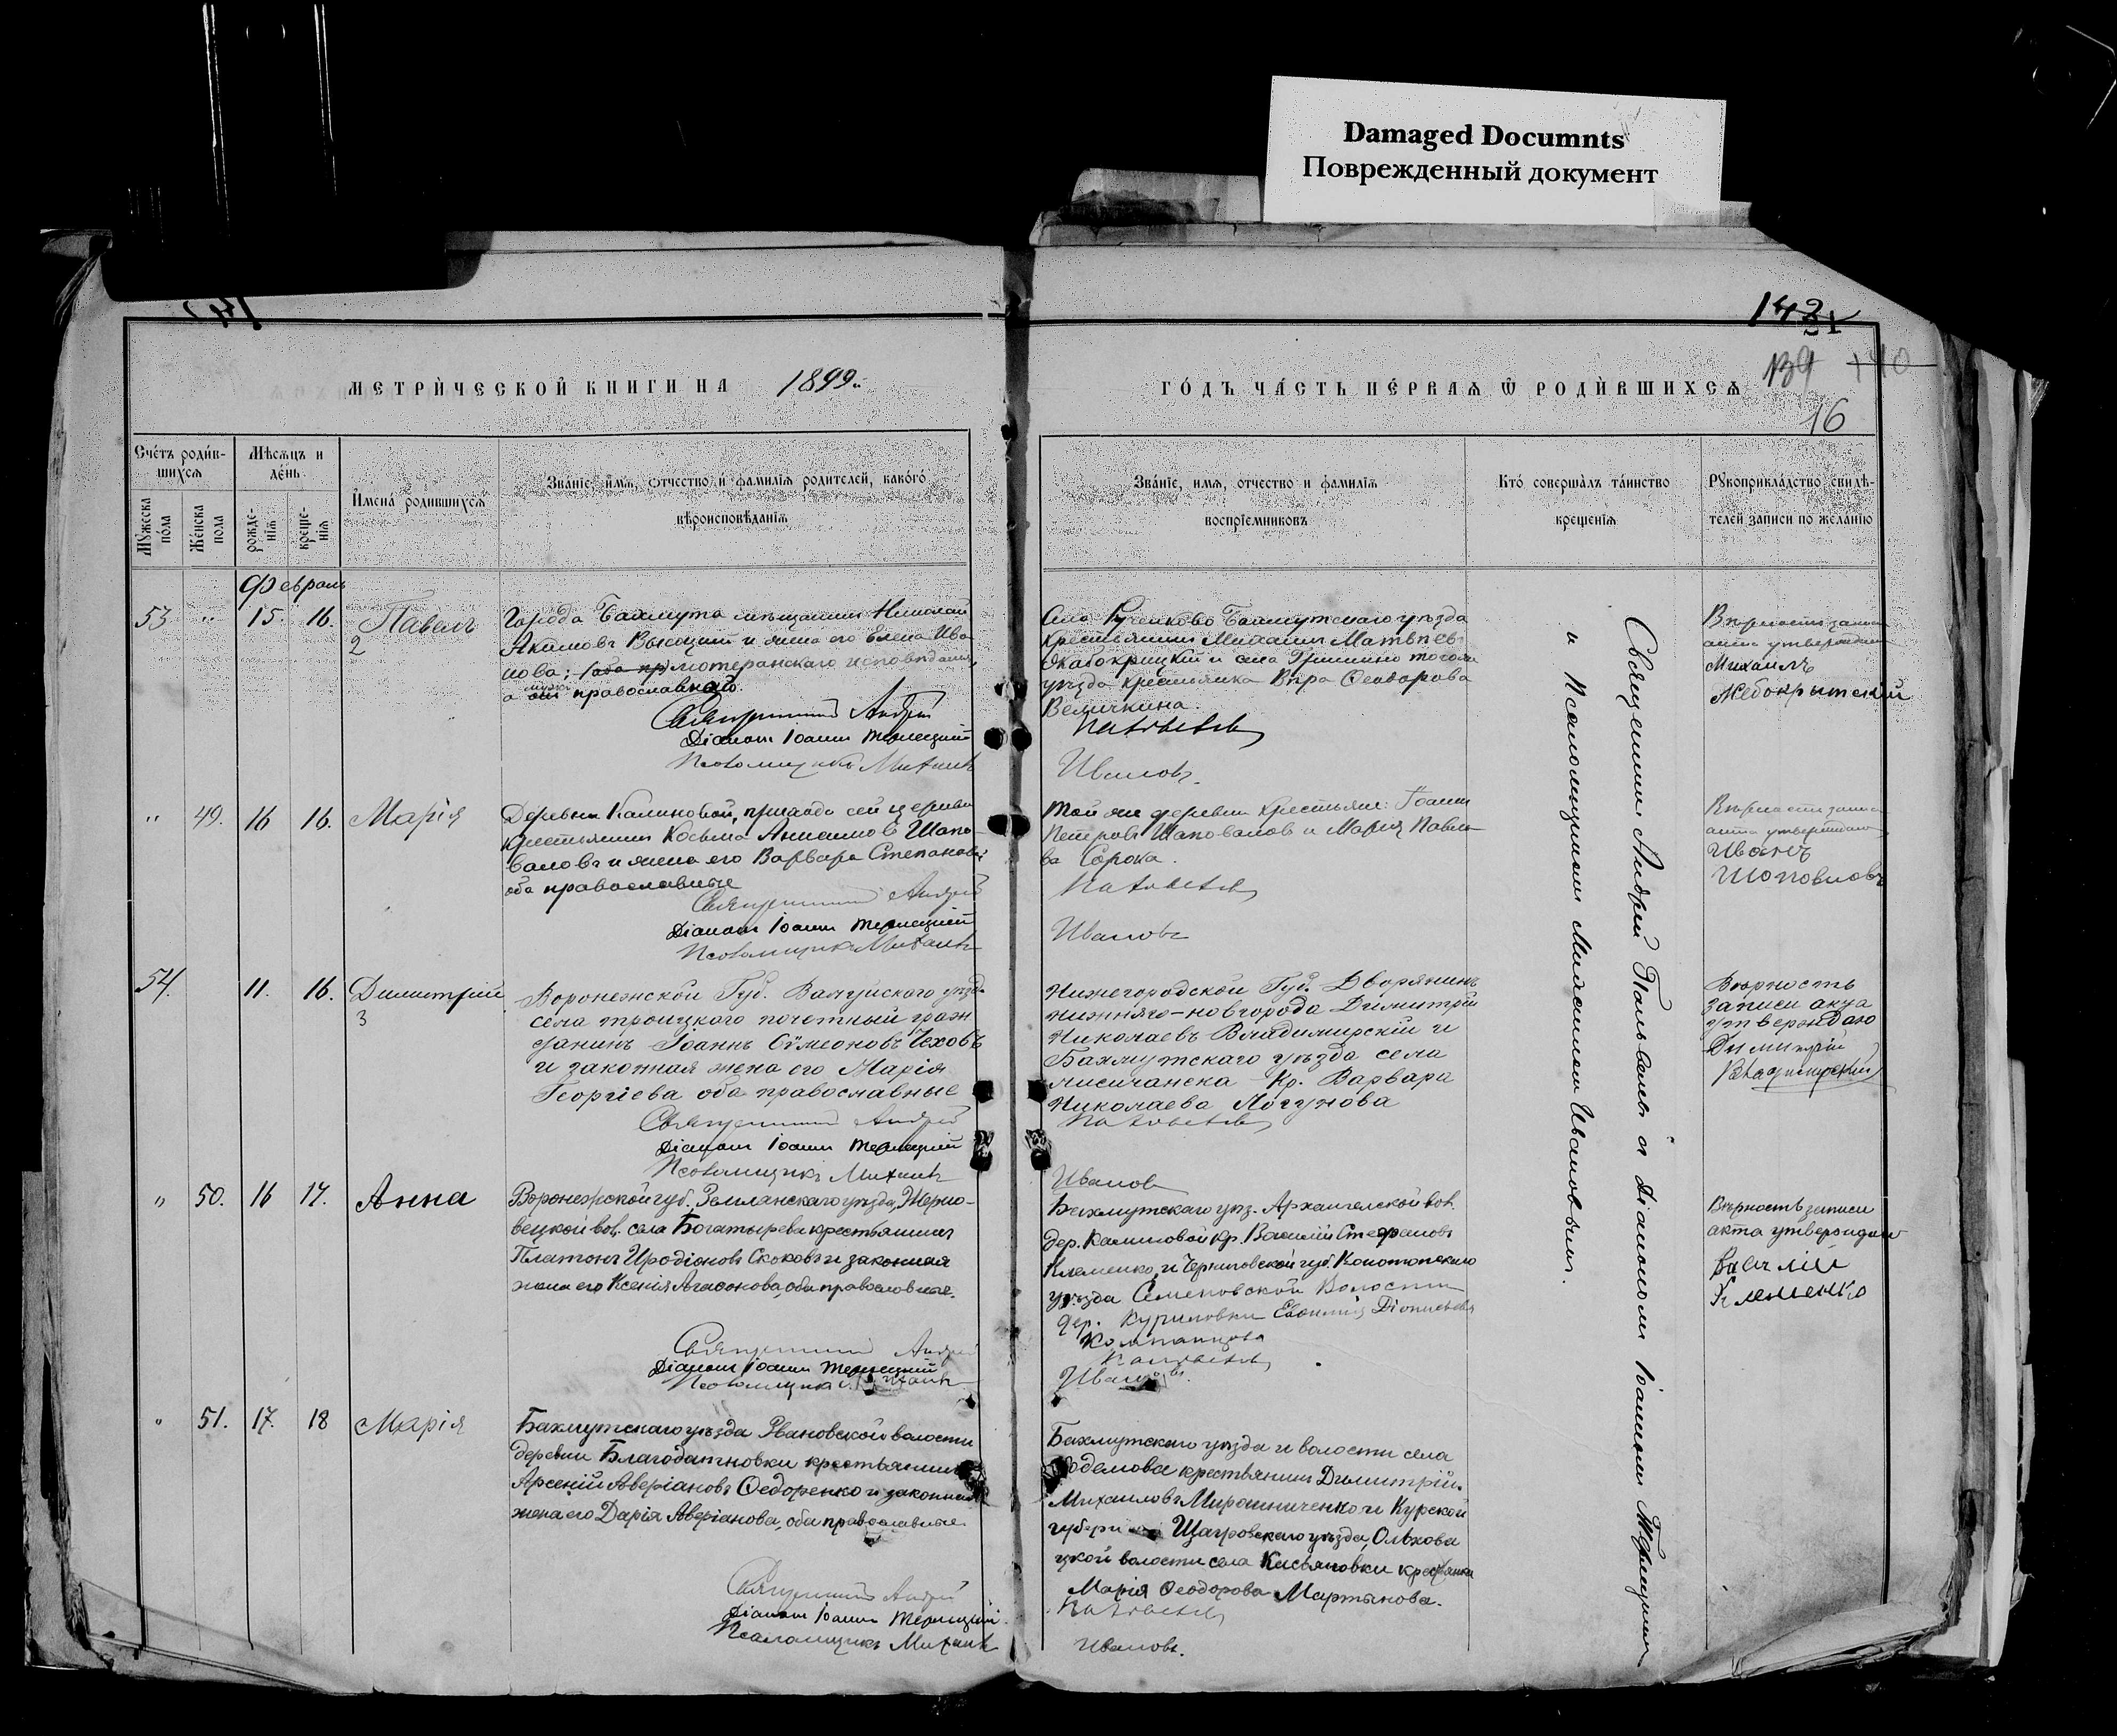 Damaged Documnts
Поврежденный документ
142
1
139 140
16
МЕТРИ́ЧЕСКОЙ КНИГИ НА 1899
ГО́ДЪ ЧА́СТЬ ПЕ́РВАѦ Ѿ РОДИ́ВШИХСѦ
Сче́тъ роди́в-
шихсѧ
Мѣсѧцъ и
де́нь.
Мꙋжеска
по́ла
Же́нска
пола
рожде-
нїѧ
креще-
нїѧ
И҆мена̀ роди́вшихсѧ
Зва́нїе, и҆мѧ, отчество и҆ фамилїѧ родителей, како́гѡ
вѣроисповѣданїѧ
Зва́нїе, имѧ, отчество и фамилїѧ
воспрїемниковъ
Кто̀ совершалъ та́инство
крещенїѧ
Рꙋкоприкла́дство свидѣ-
телей записи по жела́нїю
Февраль
53 " 15. 16. Павелъ
2
Города Бахмута мѣщанинъ Николай
Акимовъ Высоцкій и жена его Елена Ива
нова; лютеранскаго исповѣданія,
а православнаго.
Священникъ Андрей
Діаконъ Іоаннъ Терлецкій
Псаломщикъ Михаилъ
Бахмутскаго уѣзда
крестьянинъ Михаилъ Матвѣевъ
и села Гришино того же
уѣзда крестьянка Вѣра Ѳеодорова
Величкина.
Ивановъ.
Вѣрность записи
акта утверждаю
Михаилъ
" 49. 16 16. Марія
Деревни Калиновой, прихода сей церкви
крестьянинъ Косьма Шапо-
валовъ и жена его Варвара Степанова;
оба православные
Священникъ Андрей
Діаконъ Іоаннъ Терлецкій
Псаломщикъ Михаилъ
Той же деревни крестьяне: Іоаннъ
Петровъ Шаповаловъ и Марія Павло-
ва Сорока.
Ивановъ
Вѣрность записи
акта утверждаю
Иванъ
Шоповаловъ
54. 11. 16. Димитрій
3
Воронежской Губ. Валуйскаго уѣзда
села Троицкаго почетный граж
данинъ Іоаннъ Сѵмеоновъ Чеховъ
и законная жена его Марія
Георгіева оба православные
Священникъ Андрей
Діаконъ Іоаннъ Терлецкій
Псаломщикъ Михаилъ
Нижегородской Губ. Дворянинъ
Нижняго-новгорода Димитрій
Николаевъ Владимирскій и
Бахмутскаго уѣзда села
Лисичанска Кр. Варвара
Николаева Логунова
Ивановъ
Вѣрность
записи акта
утверждаю
Димитрій
Владимирскій
" 50. 16 17. Анна
Воронежской губ. Землянскаго уѣзда, Жерно-
вецкой вол. села Богатырева крестьянинъ
Платонъ Иродіоновъ Скоковъ и законная
жена его Ксенія Агаѳонова, оба православные.
Священникъ Андрей
Діаконъ Іоаннъ Терлецкій
Псаломщикъ Михаилъ
Бахмутскаго уѣз. Архангельской вол.
дер. Калиновой кр. Василій Стефановъ
Клеменко, и Черниговской губ. Конотопскаго
уѣзда Семеновской Волости
дер. Куриловки Евѳимія Діонисіева
Компанцова
Ивановъ.
Вѣрность записи
акта утверждаю
Василій
Клеменко
" 51. 17. 18 Марія
Бахмутскаго уѣзда Звановской волости
деревни Благодатновки крестьянинъ
Арсеній Аверіановъ Ѳедоренко и законная
жена его Дарія Аверіанова, оба православные.
Священникъ Андрей
Діаконъ Іоаннъ Терлецкій
Псаломщикъ Михаилъ
Бахмутскаго уѣзда и волости села
крестьянинъ Димитрій
Михаиловъ Мирошниченко и Курской
губерніи Щигровскаго уѣзда, Ольхова
цкой волости села Касьяновки крестьянка
Марія Ѳеодорова Мартынова.
Ивановъ.
Священникъ Андрей съ Діакономъ Іоанномъ Терлецкимъ
и Псаломщикомъ Михаиломъ Ивановымъ.